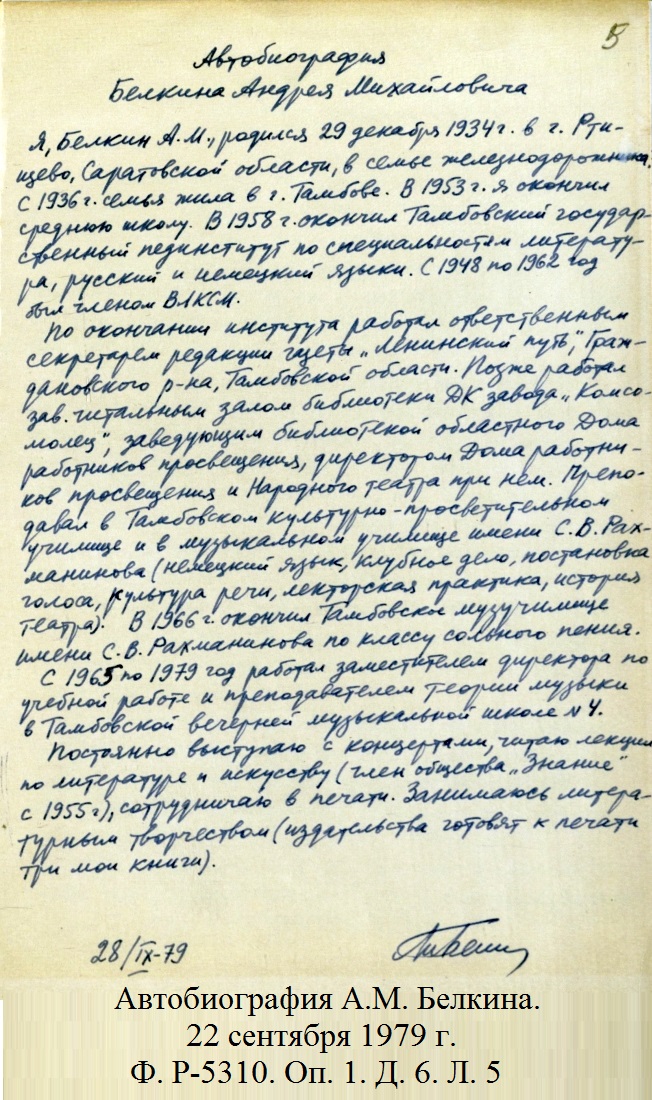 5
Автобиография
Белкина Андрея Михайловича
Я, Белкин А.М., родился 29 декабря 1934 г. в г. Рти-
щево, Саратовской области, в семье железнодорожника.
С 1936 г. семья жила в г. Тамбове. В 1953 г. я окончил
среднюю школу. В 1958 г. окончил Тамбовский государ-
ственный пединститут по специальностям литерату-
ра, русский и немецкий языки. С 1948 по 1962 год
был членом ВЛКСМ.
По окончании института работал ответственным
секретарем редакции газеты „Ленинский путь", Граж-
дановского р-на, Тамбовской области. Позже работал
зав. читальным залом библиотеки ДК завода „Комсо-
молец", заведующим библиотекой областного Дома
работников просвещения, директором Дома работни-
ков просвещения и Народного театра при нем. Препо-
давал в Тамбовском культурно-просветительном
училище и в музыкальном училище имени С.В. Рах-
манинова (немецкий язык, клубное дело, постановка
голоса, культура речи, лекторская практика, история
театра). В 1966 г. окончил Тамбовское музучилище
имени С.В. Рахманинова по классу сольного пения.
С 1965 по 1979 год работал заместителем директора по
учебной работе и преподавателем теории музыки
в Тамбовской вечерней музыкальной школе № 4.
Постоянно выступаю с концертами, читаю лекции
по литературе и искусству (член общества „Знание"
с 1955 г.), сотрудничаю в печати. Занимаюсь литера-
турным творчеством (издательства готовят к печати
три мои книги).
28/IX-79
Автобиография А.М. Белкина.
22 сентября 1979 г.
Ф. Р-5310. Оп. 1. Д. 6. Л. 5